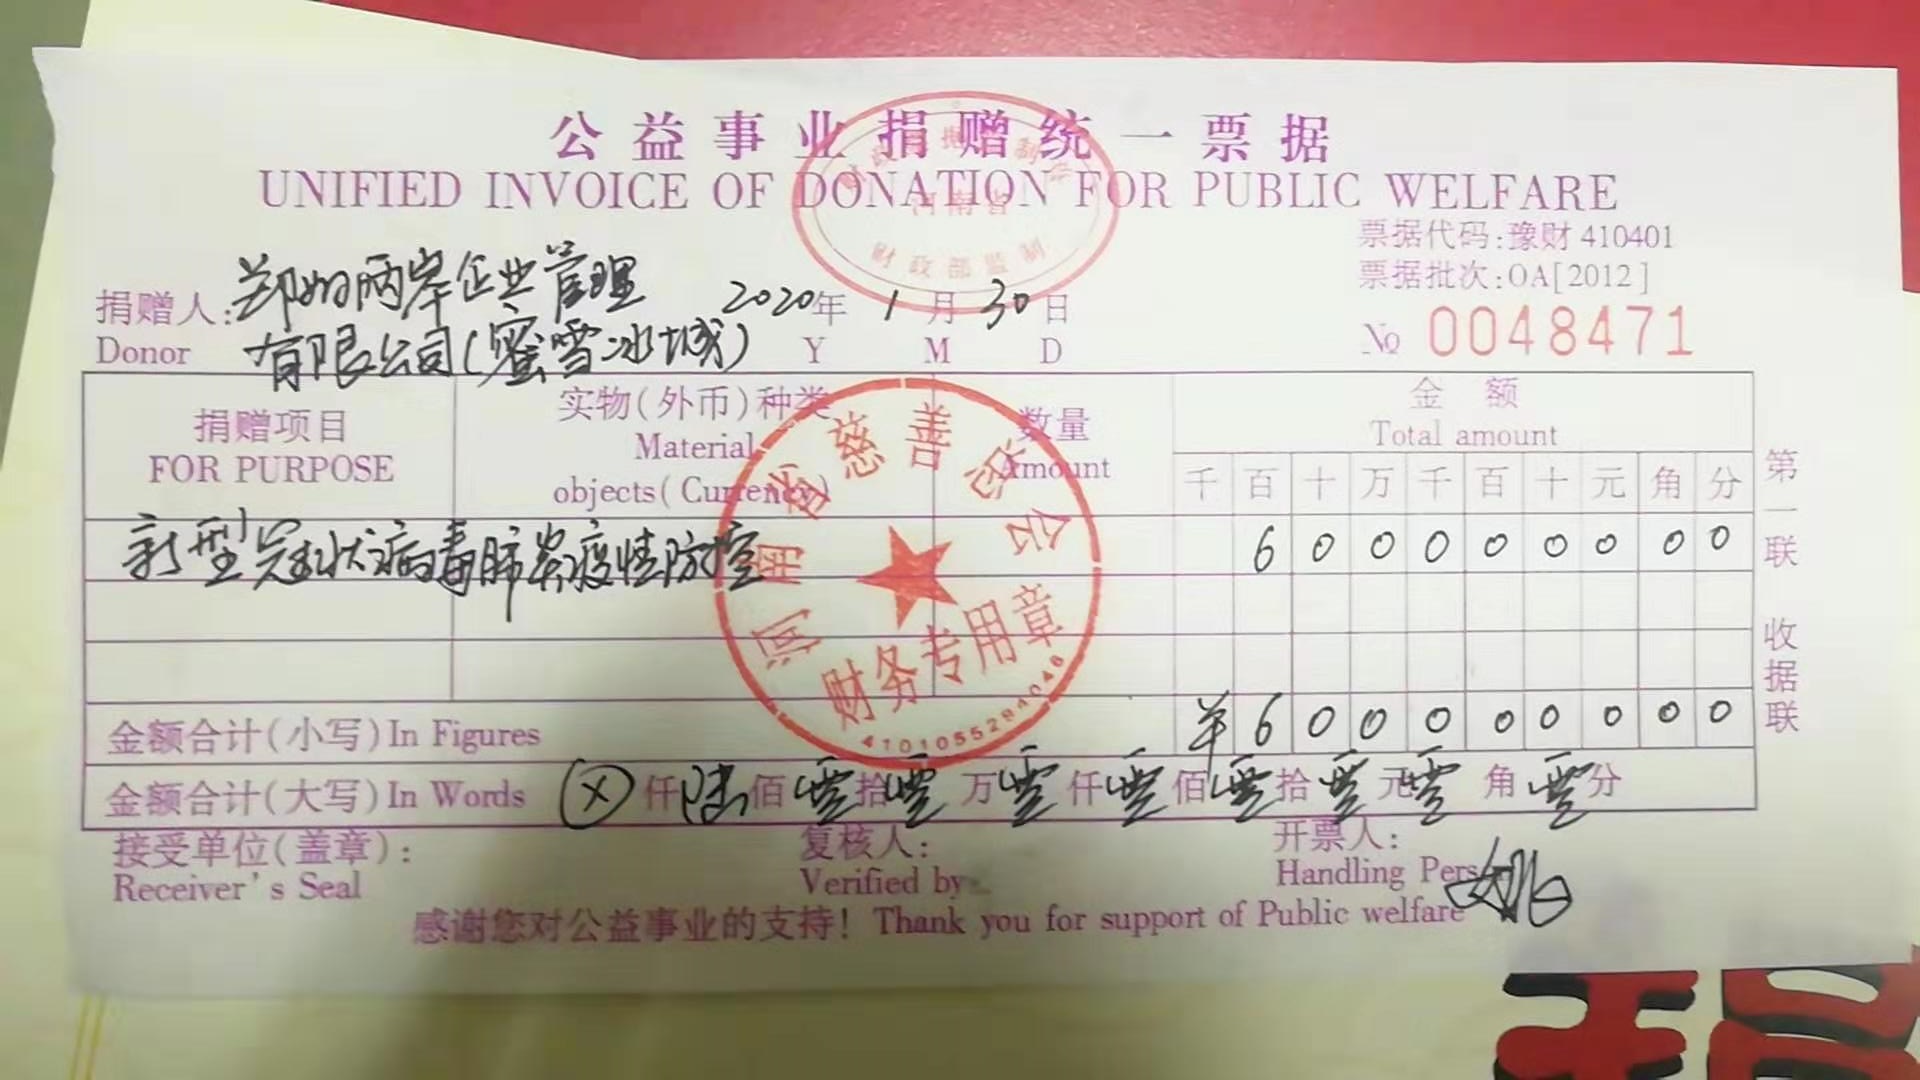 公益事业捐赠统一票据
UNIFIED INVOICE OF DONATION FOR PUBLIC WELFARE
河南省
财政部监制
票据代码:豫财 410401
票据批次:OA[2012]
№ 0048471
捐赠人: 郑州两岸企业管理
Donor 有限公司(蜜雪冰城)
2020年 1月 30日
Y M D
捐赠项目
FOR PURPOSE
实物(外币)种类
Material
objects(Currency)
数量
Amount
金 额
Total amount
千 百 十 万 千 百 十 元 角 分
新型冠状病毒肺炎疫情防控
6 0 0 0 0 0 0 0 0
河南省慈善总会
财务专用章
4101055284046
金额合计(小写)In Figures ¥ 6 0 0 0 0 0 0 0 0
金额合计(大写)In Words ⊗ 仟 陆 佰 零 拾 零 万 零 仟 零 佰 零 拾 零 元 零 角 零 分
第一联 收据联
接受单位(盖章):
Receiver's Seal
复核人:
Verified by
开票人:
Handling Pers
姚
感谢您对公益事业的支持! Thank you for support of Public welfare